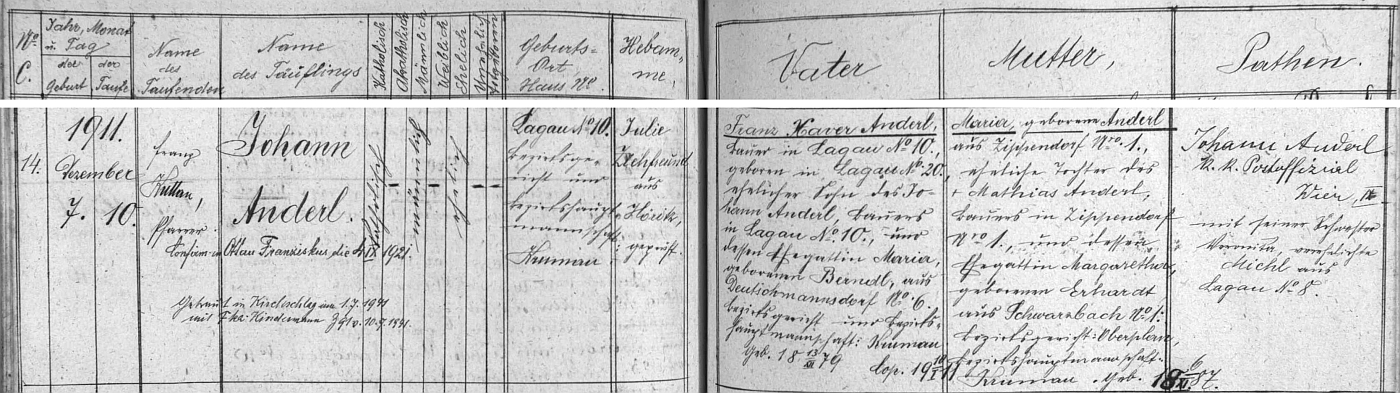 No. C.
Jahr, Monat u. Tag
der Geburt
der Taufe
Name des Taufenden
Name des Täuflings
Katholisch
Akatholisch
Männlich
Weiblich
Ehelich
Geburts-Ort Haus No
Hebamme,
Vater
Mutter,
Pathen.
14.
1911.
Dezember
7. 10.
Franz
Pfarrer.
Johann
Anderl.
Ottau Franziskus die 4/IX 1921.
Getraut in Kirchschlag am 1.7.1941
katholisch
männlich
ehelich
Lagau No 10.
Bezirksge-
richt und
Bezirkshaupt-
mannschaft:
Krumau
Julie
aus
Höritz,
geprüft.
Franz Xaver Anderl,
Bauer in Lagau No 10.,
geboren in Lagau No. 20.
ehelicher Sohn des Jo-
hann Anderl, Bauers
in Lagau No. 10., und
dessen Ehegattin Maria,
geborenen Berndl, aus
Deutschmannsdorf No 6.
Bezirksgericht und Bezirks-
hauptmannschaft: Krumau
Geb. 18 13/XI 79
Cop. 19 10/I 11
Maria, geborene Anderl
aus Zippendorf Nro 1.,
eheliche Tochter des
+ Mathias Anderl,
Bauers in Zippendorf
Nro 1., und dessen
Ehegattin Margaretha,
geborenen Erhardt,
aus Schwarzbach No 1:
Bezirksgericht: Oberplan,
Bezirkshauptmannschaft:
Krumau. Geb. 18 6/XI. 87.
Johann Anderl
k. k. Postoffizial
Wien,
mit seiner Schwester
verehelichte
Michl aus
Lagau No 8.